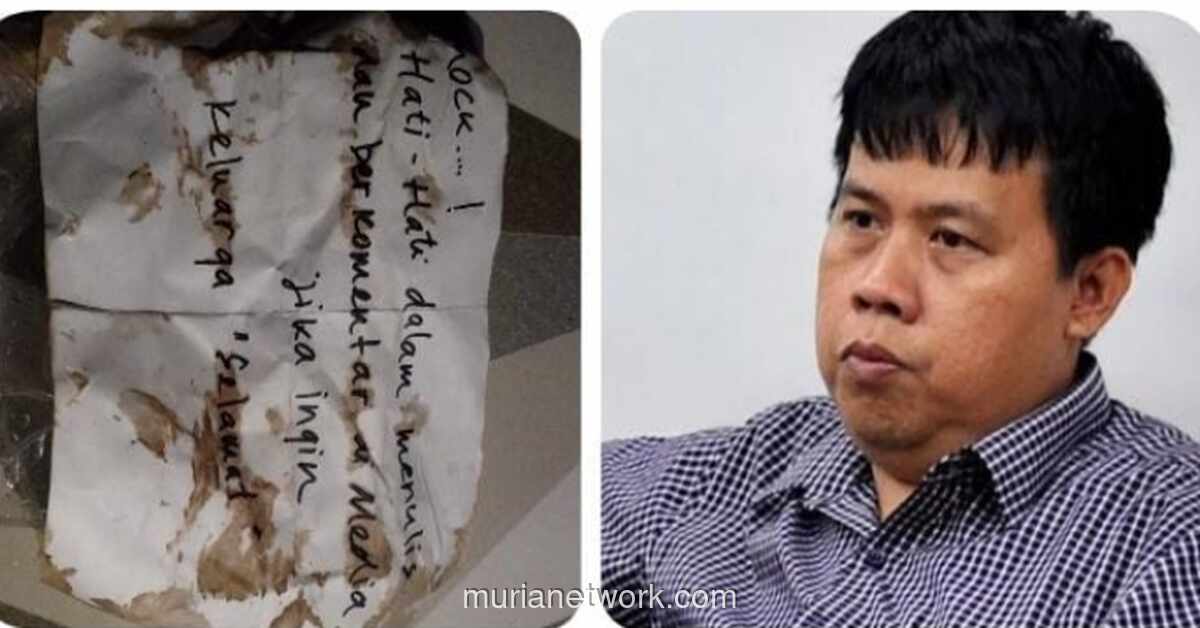 Hati-Hati dalam menulis
dan berkomentar di Media
jika ingin
Keluarga 'Selamat
murianetwork.com